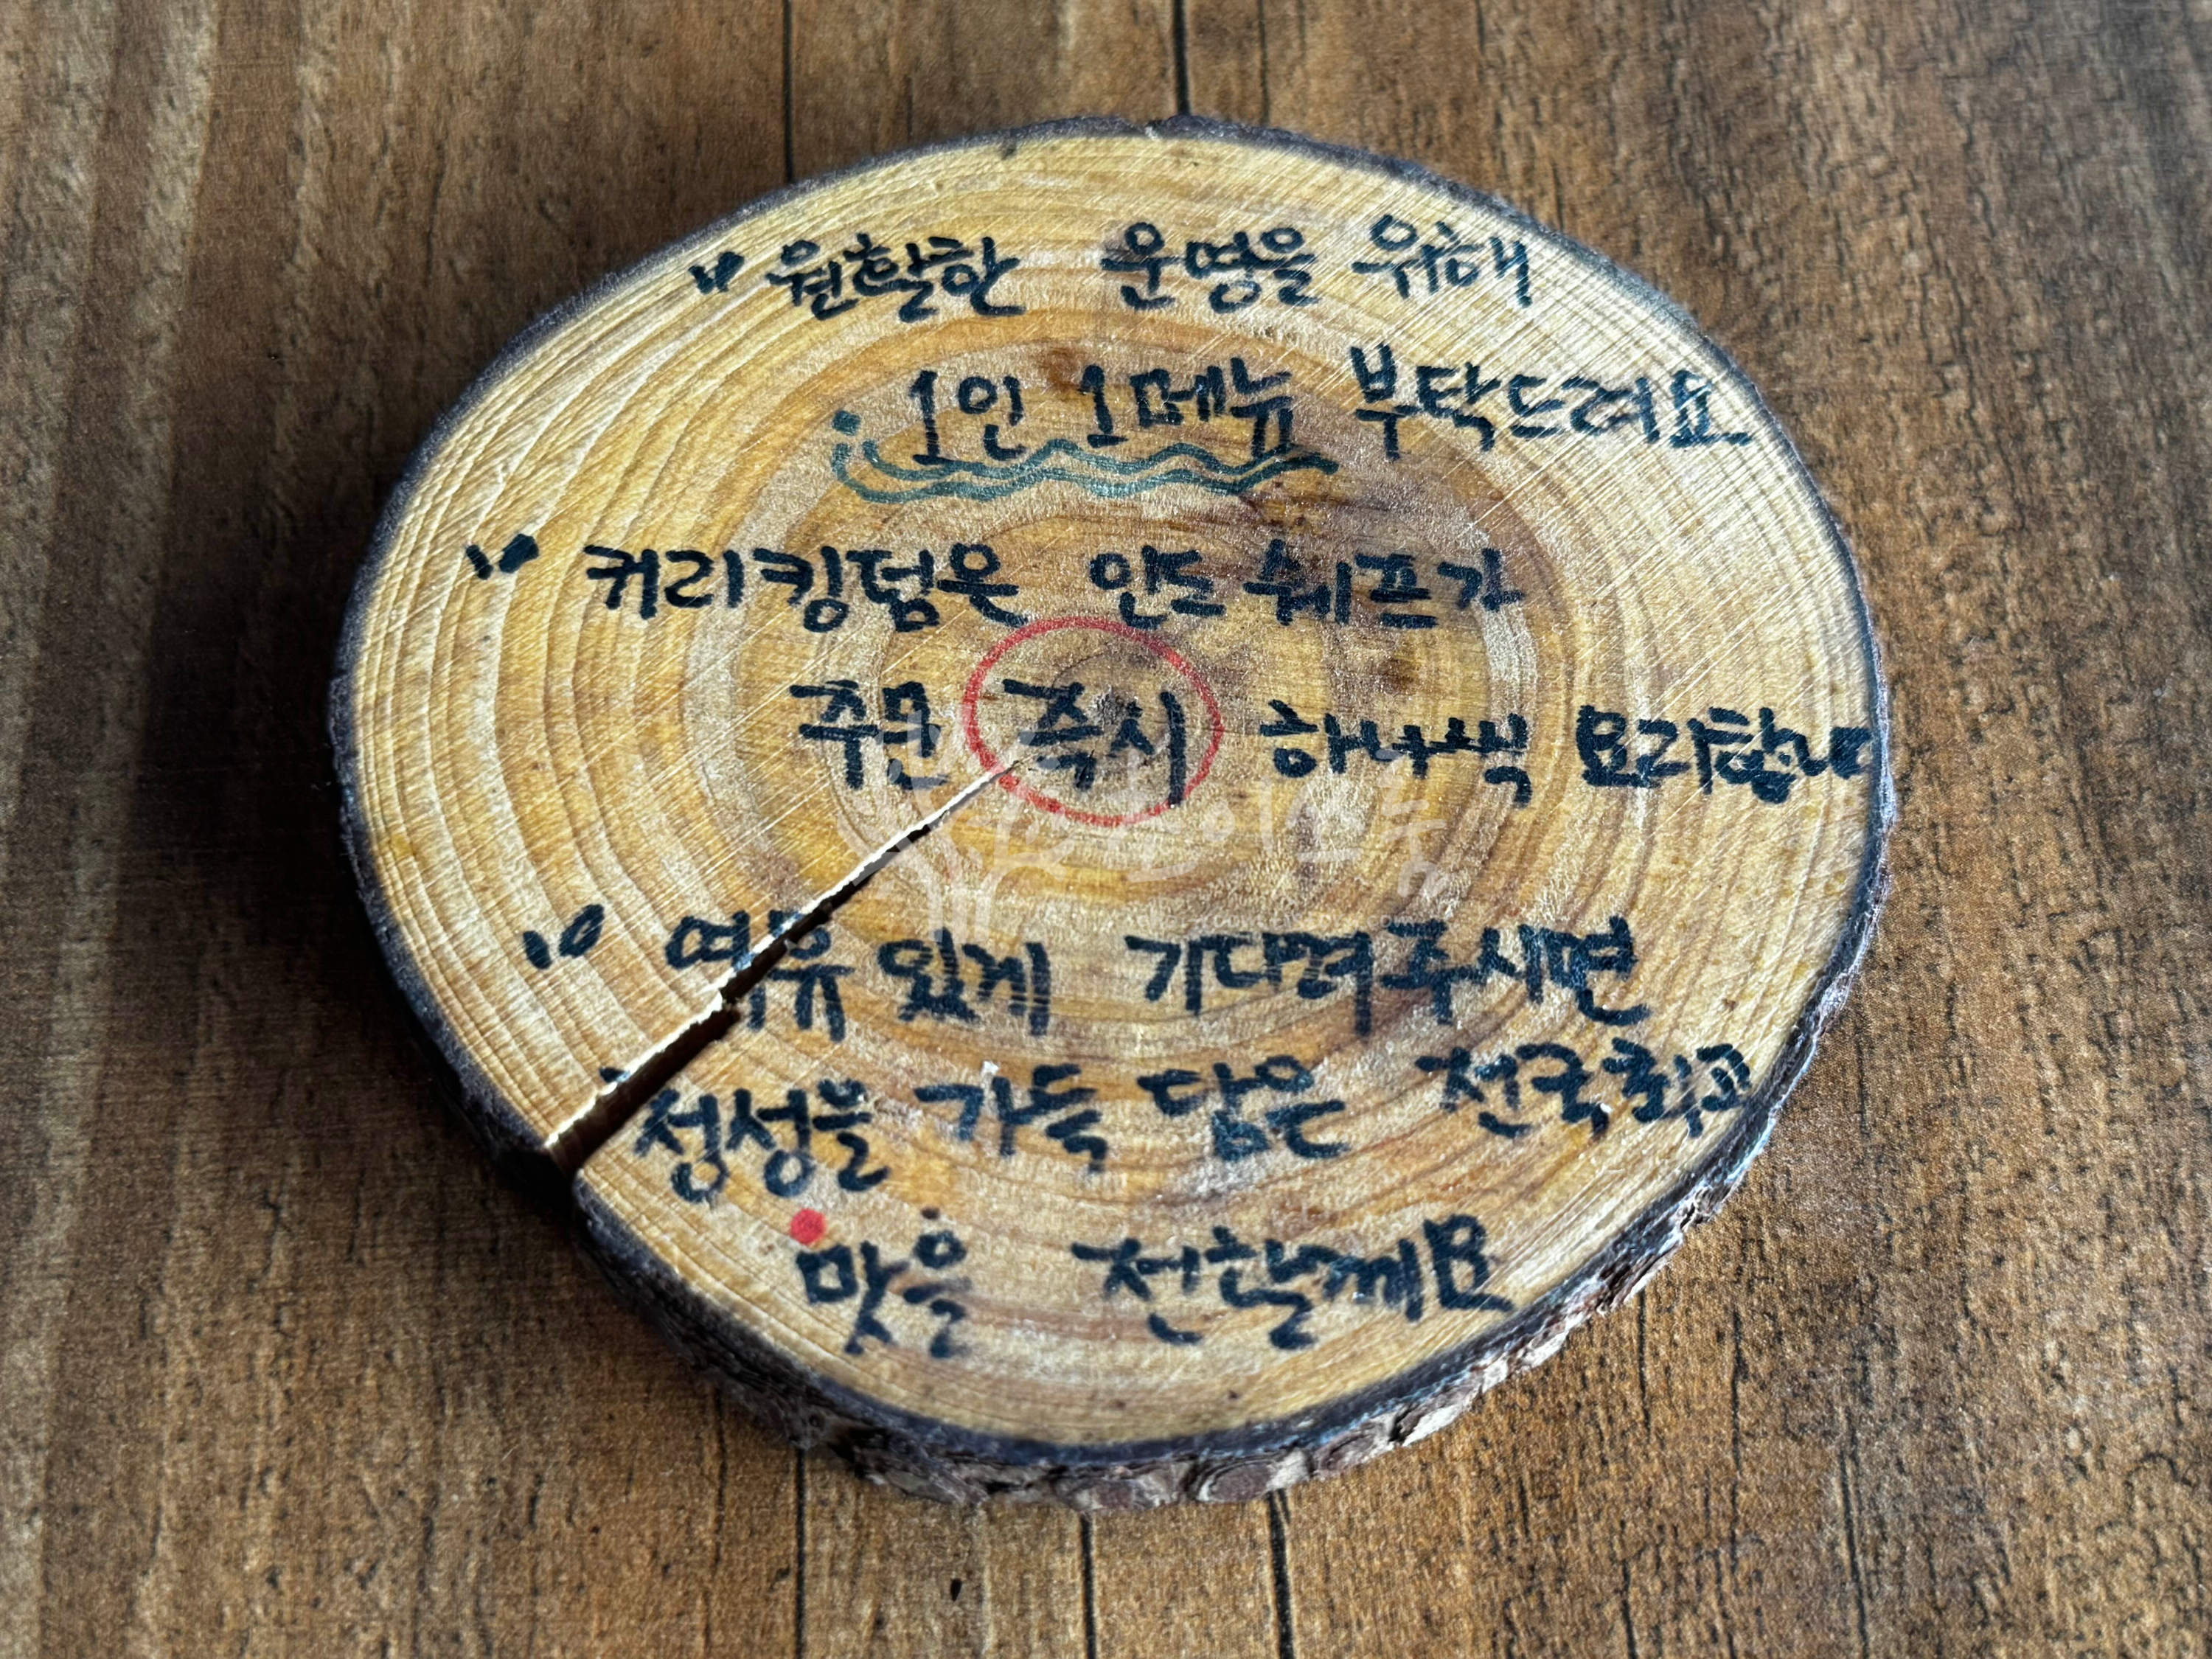 " 원활한 운영을 위해
1인 1메뉴 부탁드려요
" 커리킹덤은 인도쉐프가
주문 즉시 하나씩 요리합니다
" 여유있게 기다려주시면
정성을 가득 담은 전국최고
맛을 전할께요